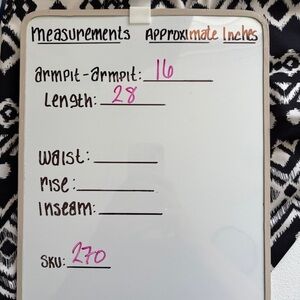 measurements Approximate Inches
armpit-armpit: 16
Length: 28
waist:
rise:
Inseam:
SKU: 270